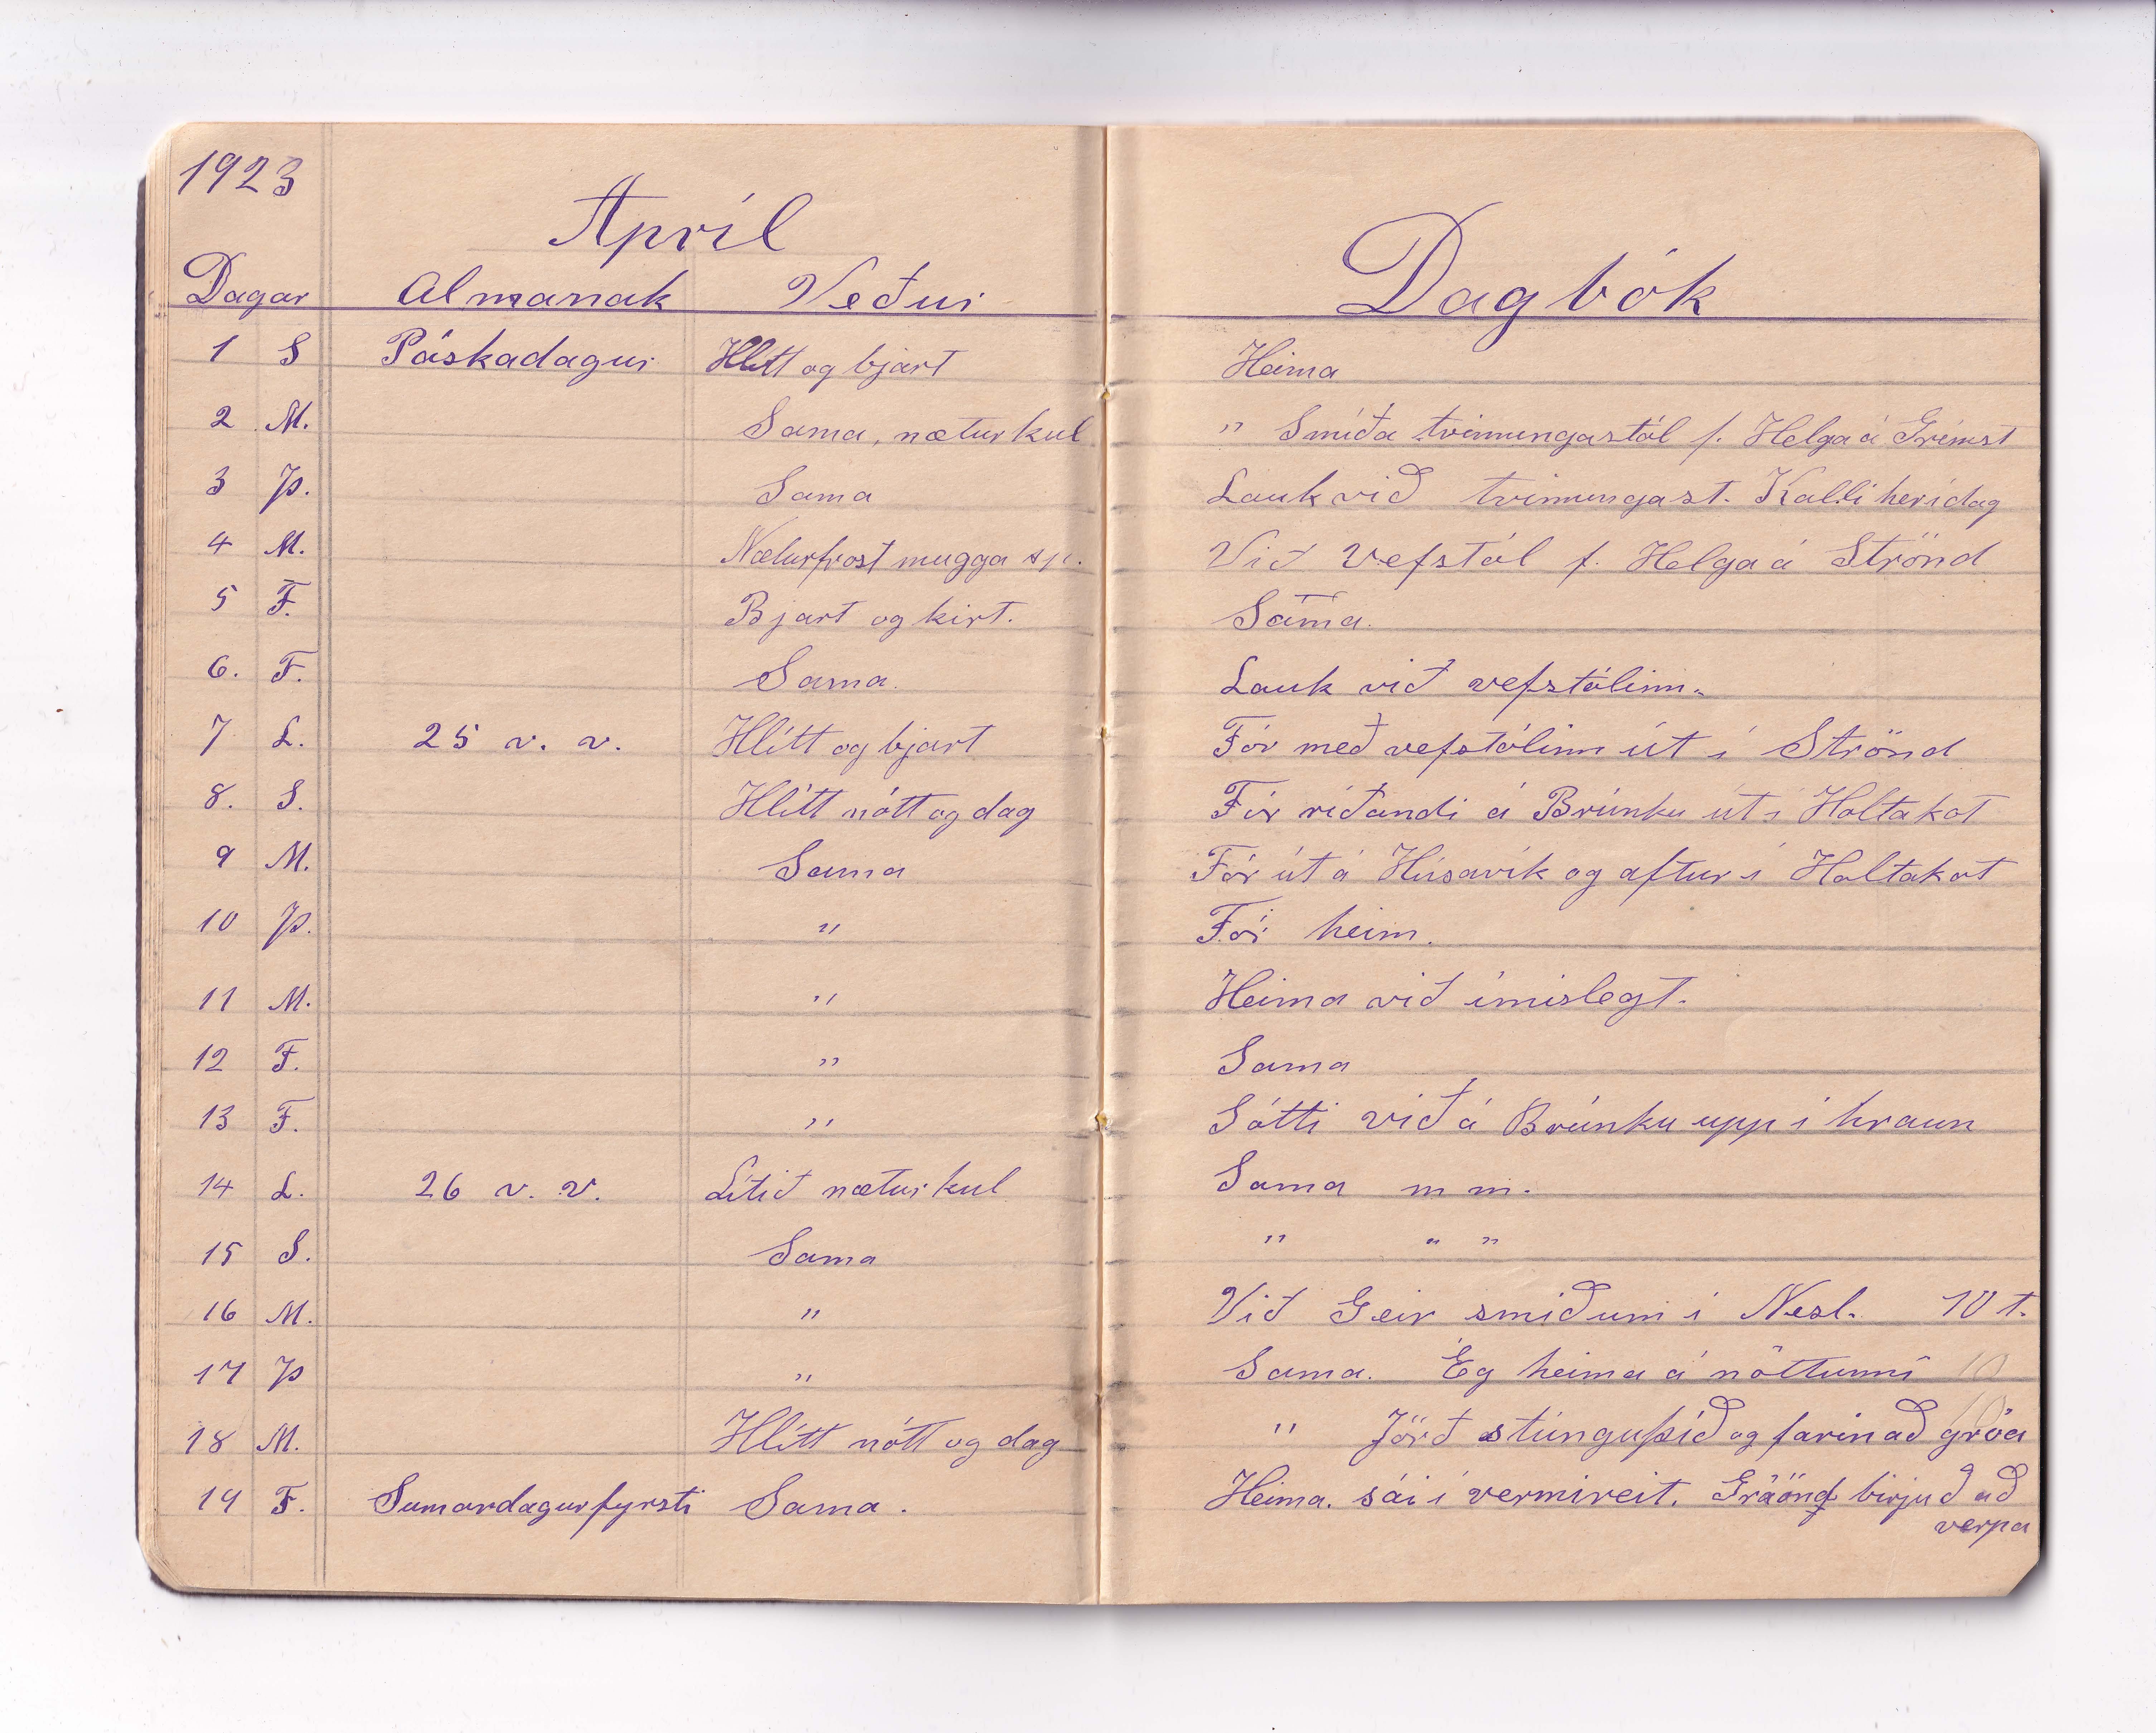 1923
Apríl
Dagbók
Dagar Almanak Veður
1 S Páskadagur Hlítt og bjart Heima
2 M. Sama, nætur kul " Smíða tvinningastól f. Helga á Grímst
3 Þ. Sama Lauk við tvinningast. Kalli her í dag
4 M. Næturfrost mugga sp. Við vefstól f. Helga á Strönd
5 F. Bjart og kirt. Sama.
6. F. Sama. Lauk við vefstólinn.
7 L. 25 v. v. Hlítt og bjart Fór með vefstólinn út í Strönd
8. S. Hlítt nótt og dag Fór ríðandi á Brúnku út í Holtakot
9 M. Sama Fór út á Húsavík og aftur í Holtakot
10 Þ. " Fór heim.
11 M. " Heima við ímislegt.
12 F. " Sama
13 F. " Sótti við á Brúnku upp í hraun
14 L. 26 v. v. Lítið nætur kul Sama m m.
15 S. Sama " " "
16 M. " Við Geir smíðum í Nesl. 10 t.
17 Þ " Sama. Eg heima á nóttunni 10
18 M. Hlítt nótt og dag " Jörð stunguþíð og farin að gróa
19 F. Sumardagur fyrsti Sama. Heima. sái í vermireit. Gráönd birjuð að
verpa